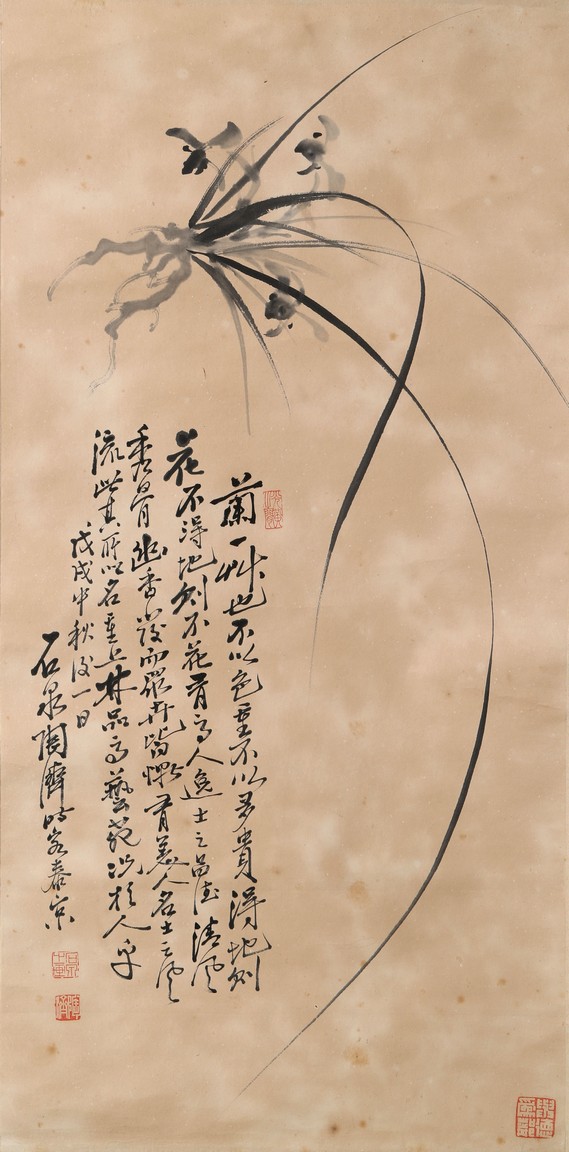 蘭一艸也不以色重不以多貴得地則
花不得地則不花有高人逸士之品德清風
秀骨幽香發而眾卉皆慚有美人名士之風
流此其所以名重上林品高藝苑況於人乎
戊戌中秋後一日
石泉陶濟時客春京